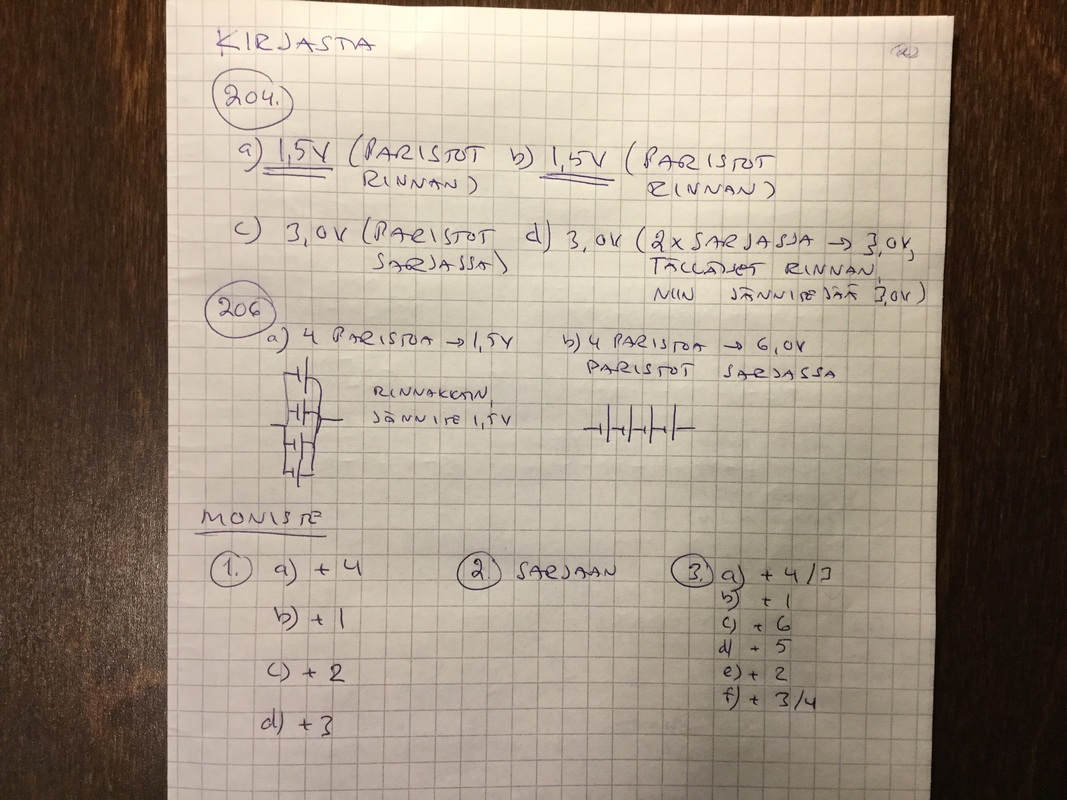 KIRJASTA
204.
a) 1,5V (PARISTOT RINNAN)
b) 1,5V (PARISTOT RINNAN)
c) 3,0V (PARISTOT SARJASSA)
d) 3,0V (2x SARJASSA → 3,0V,
TÄLLAISET RINNAN,
NIIN JÄNNITE JÄÄ 3,0V)
206
a) 4 PARISTOA → 1,5V
RINNAKKAIN,
JÄNNITE 1,5V
b) 4 PARISTOA → 6,0V
PARISTOT SARJASSA
MONISTE
1. a) + 4
b) + 1
c) + 2
d) + 3
2. SARJAAN
3. a) + 4/3
b) + 1
c) + 6
d) + 5
e) + 2
f) + 3/4